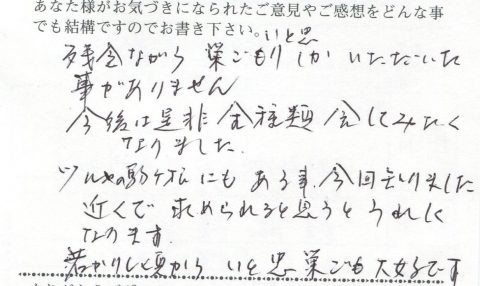 あなた様がお気づきになられたご意見やご感想をどんな事
でも結構ですのでお書き下さい。
いと忠
残念ながら 巣ごもりしか いただいた
事がありません
今後は是非 全種類 食してみたく
なりました.
ツルヤの駒ケ根にもある事.今回知りました
近くで 求められると思うと うれしく
なります.
若かりし頃から いと忠 巣ごも 大好きです